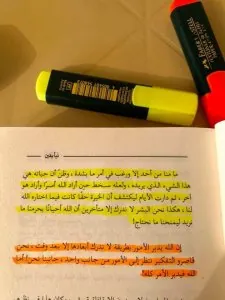 نبأ يقين
ما منا من أحد إلا ورغب في أمر ما بشدة، وظن أن حياته هي
هذا الشيء الذي يريده، ولعله سخط حين أراد الله أمراً وأراد هو
آخر، ثم دارت الأيام ليكتشف أن الخيرة حقًا كانت فيما اختاره الله
لنا، هكذا نحن البشر لا ندرك إلا متأخرين أن الله أحيانًا يحرمنا ما
نريد ليمنحنا ما نحتاج!
إن الله يدير الأمور بطريقة لا ندرك أبعادها إلا بعد وقت، نحن
قاصرو التفكير ننظر إلى الأمور من جانب واحد، جانبنا نحن! أما
الله فيدير الأمر كله!